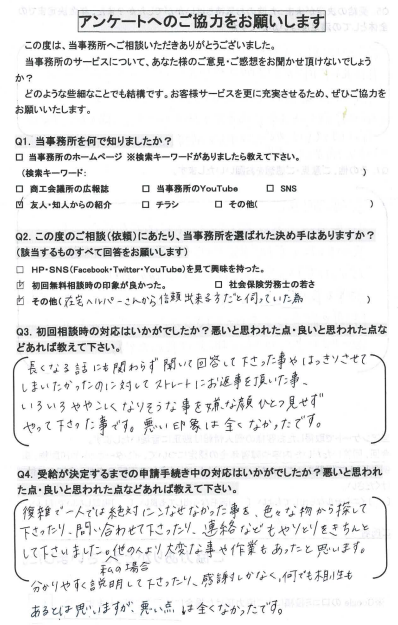 アンケートへのご協力をお願いします
この度は、当事務所へご相談いただきありがとうございました。
当事務所のサービスについて、あなた様のご意見・ご感想をお聞かせ頂けないでしょう
か？
どのような些細なことでも結構です。お客様サービスを更に充実させるため、ぜひご協力を
お願いいたします。
Q1. 当事務所を何で知りましたか？
□ 当事務所のホームページ ※検索キーワードがありましたら教えて下さい。
（検索キーワード: ）
□ 商工会議所の広報誌 □ 当事務所のYouTube □ SNS
☑ 友人・知人からの紹介 □ チラシ □ その他( )
Q2. この度のご相談（依頼）にあたり、当事務所を選ばれた決め手はありますか？
（該当するものすべて回答をお願いします）
□ HP・SNS（Facebook・Twitter・YouTube）を見て興味を持った。
☑ 初回無料相談時の印象が良かった。 □ 社会保険労務士の若さ
☑ その他(在宅ヘルパーさんから信頼出来る方だと伺っていた為 )
Q3. 初回相談時の対応はいかがでしたか？悪いと思われた点・良いと思われた点な
どあれば教えて下さい。
長くなる話にも関わらず聞いて回答して下さった事やはっきりさせて
しまいたかったのに対してストレートにお返事を頂いた事、
いろいろややこしくなりそうな事を嫌な顔ひとつ見せず
やって下さった事です。悪い印象は全くなかったです。
Q4. 受給が決定するまでの申請手続き中の対応はいかがでしたか？悪いと思われ
た点・良いと思われた点などあれば教えて下さい。
複雑で一人では絶対にこなせなかった事を、色々な物から探して
下さったり、問い合わせて下さったり、連絡などもやりとりをきちんと
して下さいました。他の人より大変な事や作業もあったと思います。
私の場合
分かりやすく説明して下さったり、感謝しかなく、何でも相性も
あるとは思いますが、悪い点は全くなかったです。